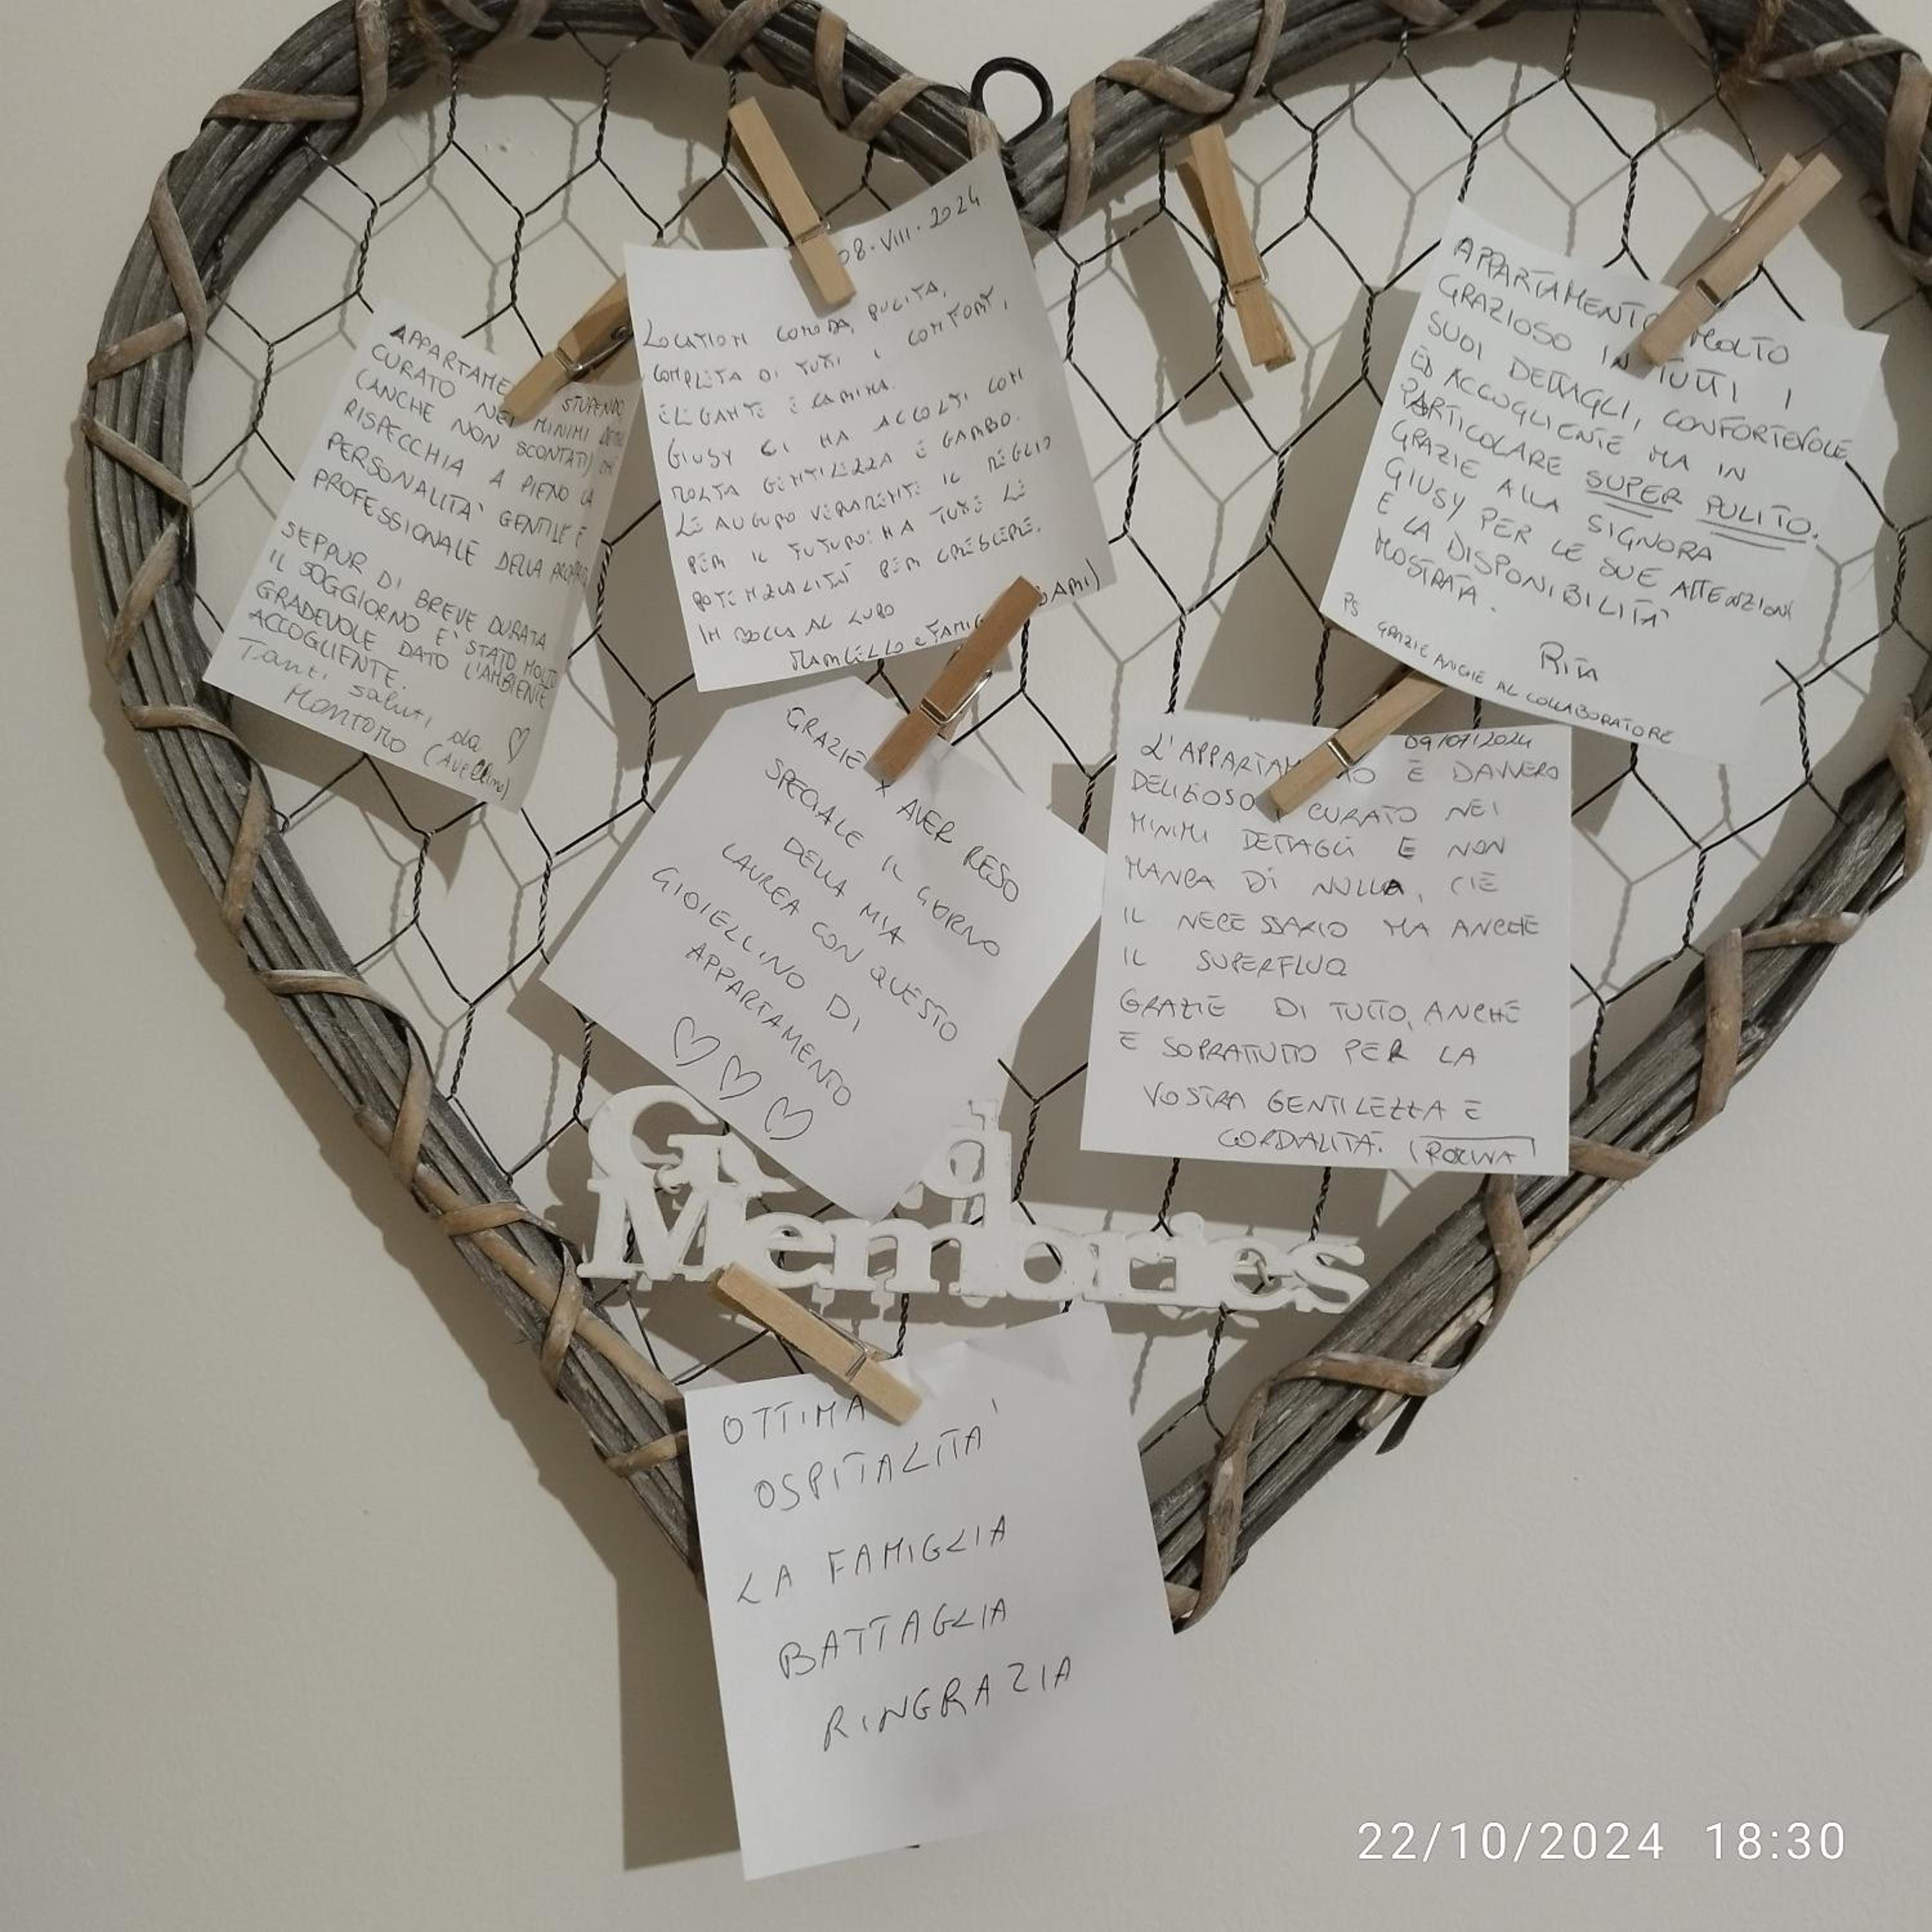 APPARTAME STUPENDO
CURATO NEI MINIMI
(ANCHE NON SCONTATI) CHE
RISPECCHIA A PIENO LA
PERSONALITA' GENTILE E
PROFESSIONALE DELLA
SEPPUR DI BREVE DURATA
IL SOGGIORNO E' STATO MOLTO
GRADEVOLE DATO L'AMBIENTE
ACCOGLIENTE.
Tanti saluti da
MONTORO (Avellino)
08.VIII.2024
LOCATION COMODA, PULITA,
COMPLETA DI TUTTI I COMFORT,
ELEGANTE E CARINA.
GIUSY CI HA ACCOLTI CON
MOLTA GENTILEZZA E GARBO.
LE AUGURO VERAMENTE IL MEGLIO
PER IL FUTURO: HA TUTTE LE
POTENZIALITÀ PER CRESCERE.
IN BOCCA AL LUPO
MARCELLO e FAMIG
APPARTAMENTO MOLTO
GRAZIOSO IN TUTTI I
SUOI DETTAGLI, CONFORTEVOLE
ED ACCOGLIENTE MA IN
PARTICOLARE SUPER PULITO.
GRAZIE ALLA SIGNORA
GIUSY PER LE SUE ATTENZIONI
E LA DISPONIBILITÀ
MOSTRATA.
RITA
PS GRAZIE ANCHE AL COLLABORATORE
GRAZIE X AVER RESO
SPECIALE IL GIORNO
DELLA MIA
LAUREA CON QUESTO
GIOIELLINO DI
APPARTAMENTO
09/07/2024
L'APPARTAM TO È DAVVERO
DELIZIOSO CURATO NEI
MINIMI DETTAGLI E NON
MANCA DI NULLA, C'È
IL NECESSARIO MA ANCHE
IL SUPERFLUO
GRAZIE DI TUTTO, ANCHE
E SOPRATUTTO PER LA
VOSTRA GENTILEZZA E
CORDIALITÀ.
Good
Memories
OTTIMA
OSPITALITA'
LA FAMIGLIA
BATTAGLIA
RINGRAZIA
22/10/2024 18:30